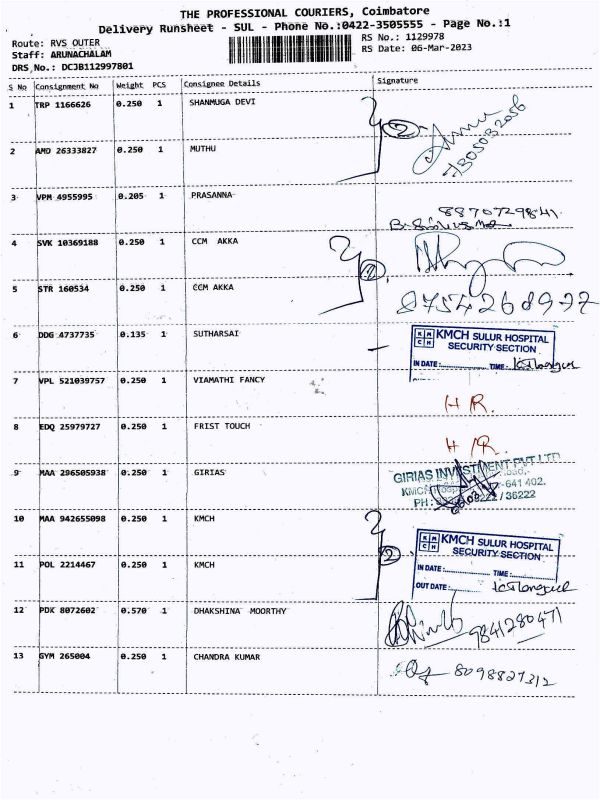 THE PROFESSIONAL COURIERS, Coimbatore
Delivery Runsheet - SUL - Phone No.:0422-3505555 - Page No.:1
Route: RVS OUTER
RS No.: 1129978
Staff: ARUNACHALAM
RS Date: 06-Mar-2023
DRS No.: DCJB112997801
S No Consignment No Weight PCS Consignee Details Signature
1 TRP 1166626 0.250 1 SHANMUGA DEVI
2
2 AMD 26333827 0.250 1 MUTHU
3 VPM 4955995 0.205 1 PRASANNA
8870729841
4 SVK 10369188 0.250 1 CCM AKKA
2
5 STR 160534 0.250 1 CCM AKKA
6 DDG 4737735 0.135 1 SUTHARSAI
KMCH KMCH SULUR HOSPITAL
SECURITY SECTION
IN DATE: TIME:
7 VPL 521039757 0.250 1 VIAMATHI FANCY
H R.
8 EDQ 25979727 0.250 1 FRIST TOUCH
H R.
9 MAA 296505938 0.250 1 GIRIAS
GIRIAS INVESTMENT PVT LTD
KMCH -641 402.
PH: 36222
10 MAA 942655098 0.250 1 KMCH
2
KMCH KMCH SULUR HOSPITAL
SECURITY SECTION
11 POL 2214467 0.250 1 KMCH
IN DATE: TIME:
OUT DATE:
12 PDK 8072602 0.570 1 DHAKSHINA MOORTHY
9841280471
13 GYM 265004 0.250 1 CHANDRA KUMAR
8098827312